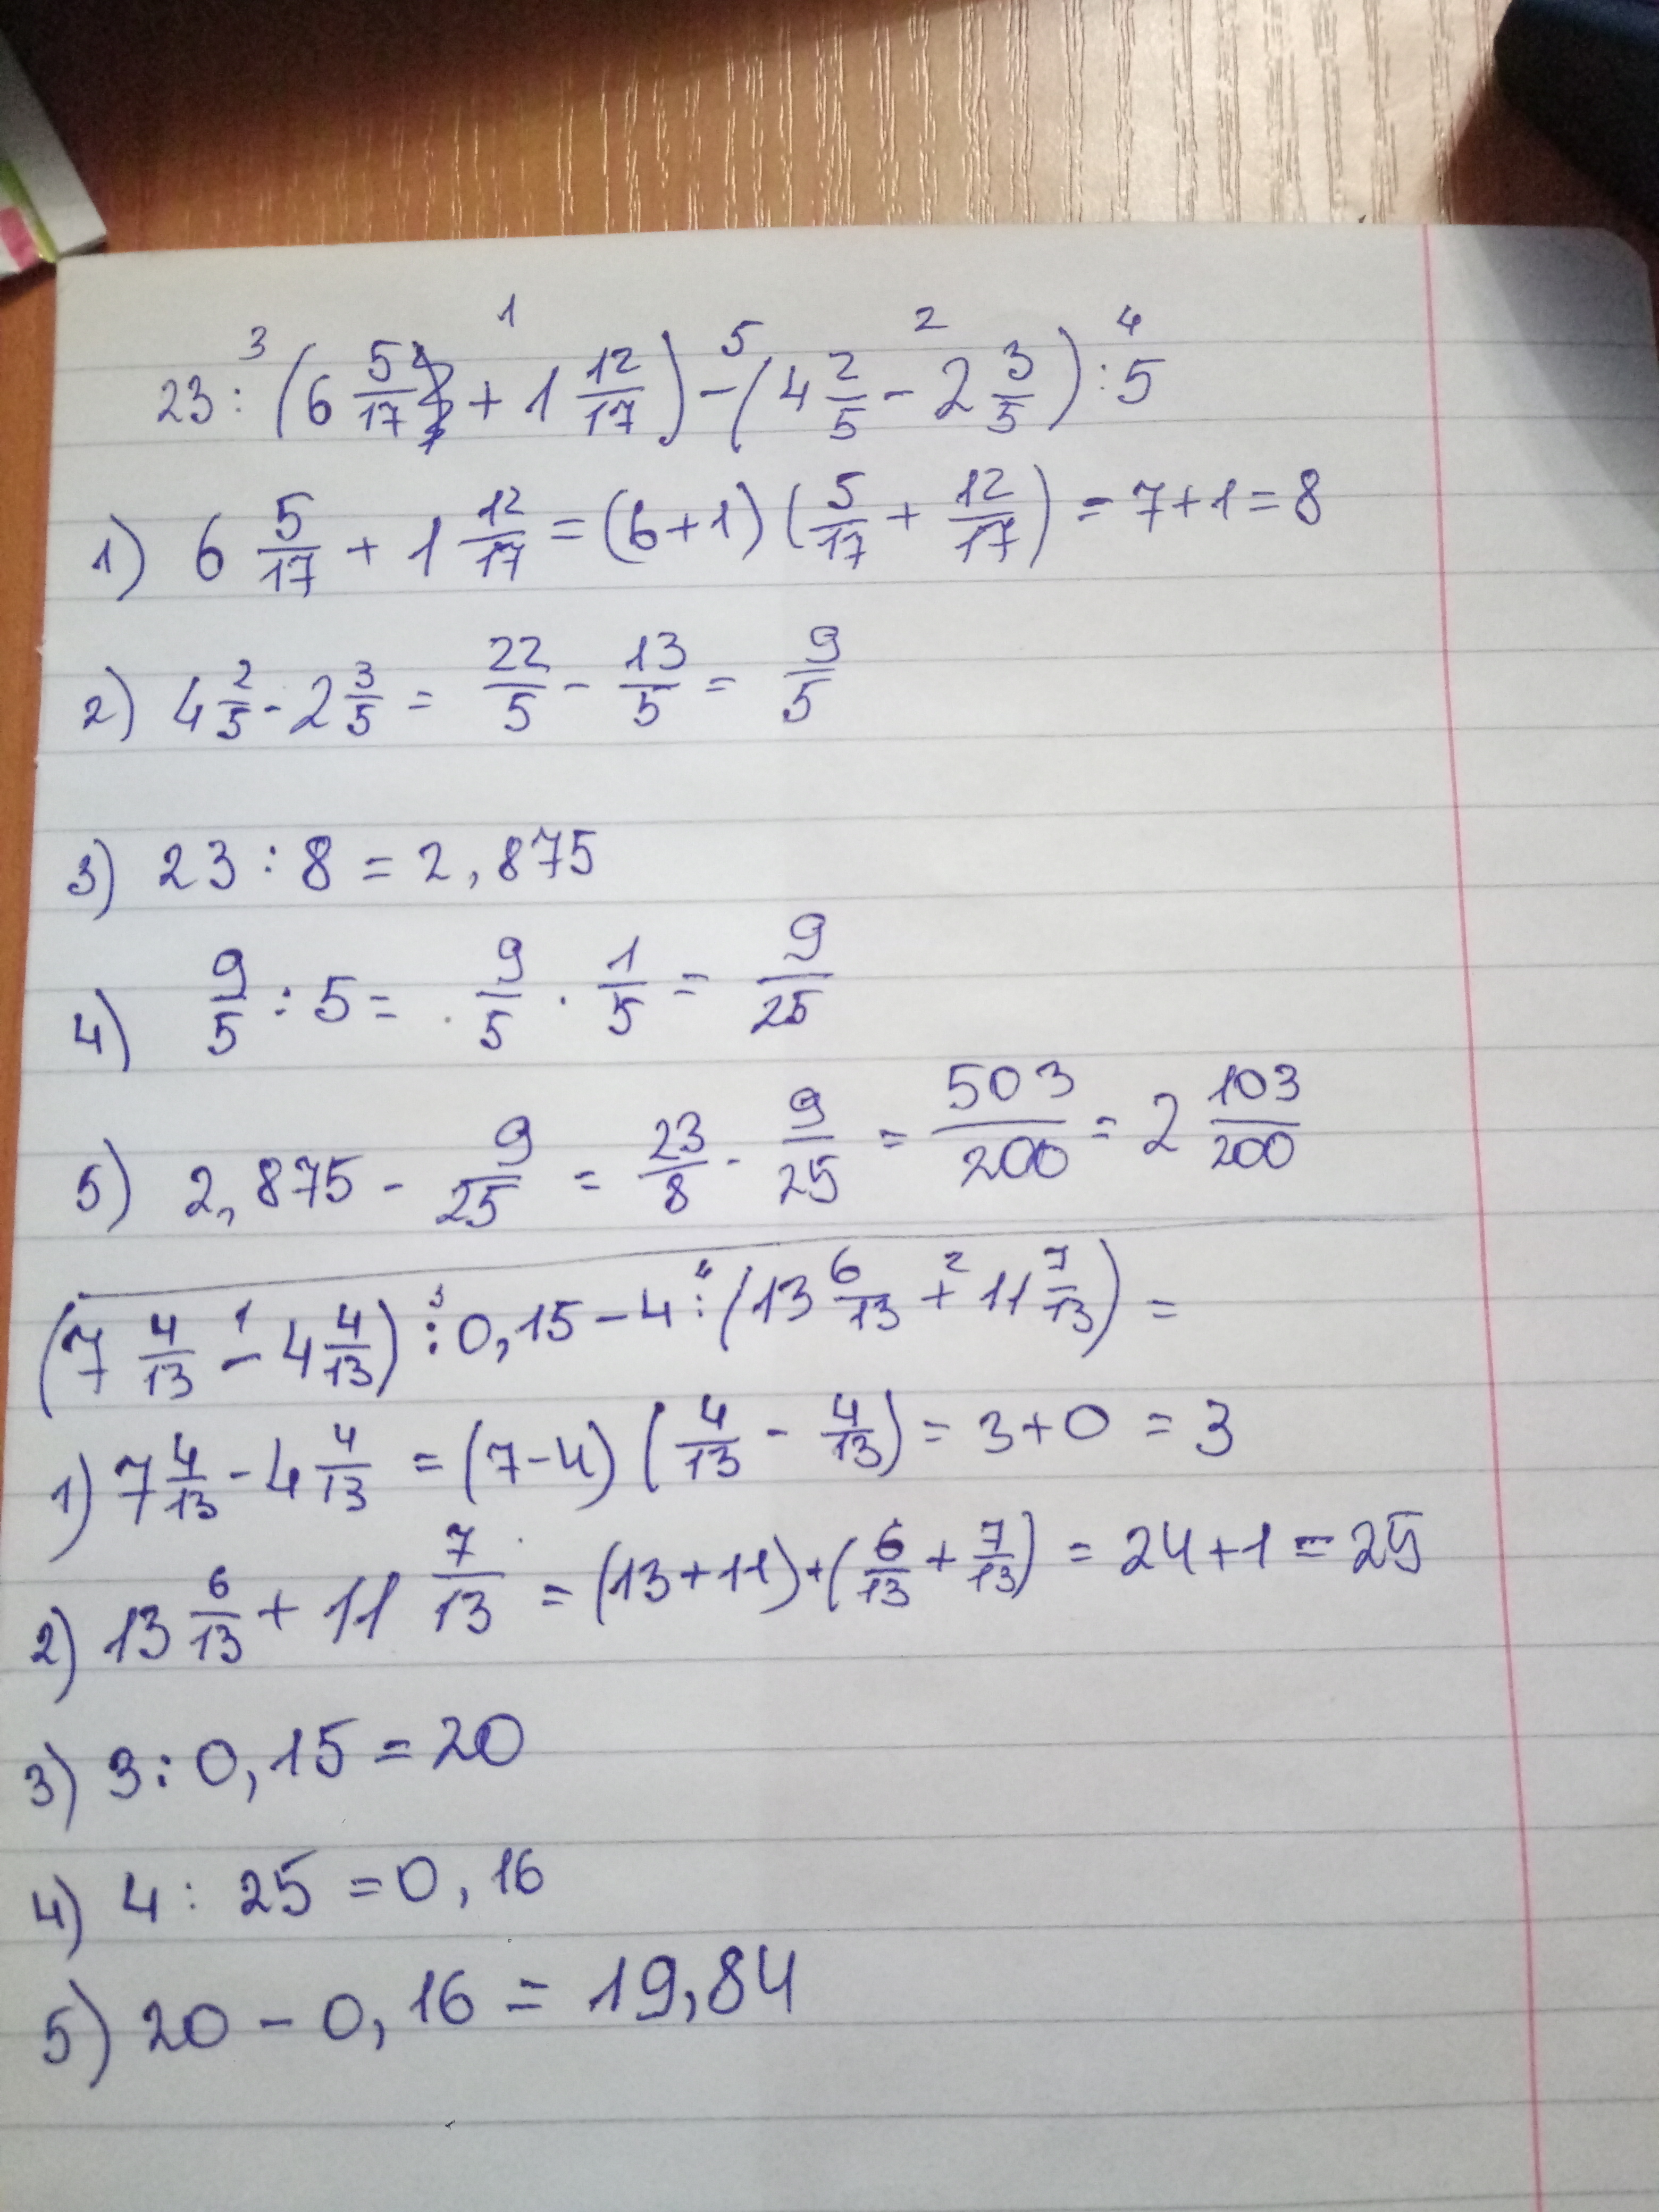 23 : (6 5/17 + 1 12/17) - (4 2/5 - 2 3/5) : 5
1) 6 5/17 + 1 12/17 = (6+1) (5/17 + 12/17) = 7+1=8
2) 4 2/5 - 2 3/5 = 22/5 - 13/5 = 9/5
3) 23 : 8 = 2,875
4) 9/5 : 5 = 9/5 · 1/5 = 9/25
5) 2,875 - 9/25 = 23/8 - 9/25 = 503/200 = 2 103/200
(7 4/13 - 4 4/13) : 0,15 - 4 : (13 6/13 + 11 7/13) =
1) 7 4/13 - 4 4/13 = (7-4) (4/13 - 4/13) = 3+0 = 3
2) 13 6/13 + 11 7/13 = (13+11)+(6/13 + 7/13) = 24+1 = 25
3) 3 : 0,15 = 20
4) 4 : 25 = 0,16
5) 20 - 0,16 = 19,84